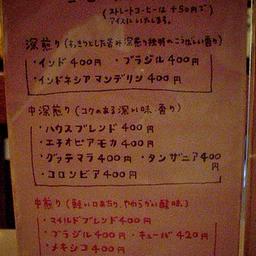 (ストレートコーヒーは +50円で
アイスにいたします。)
深煎り (すっきりとした苦み 深煎り独特のこうばしい香り)
・インド 400円 ・ブラジル 400円
・インドネシア マンデリン 400円
中深煎り (コクのある深い味、香り)
・ハウスブレンド 400円
・エチオピアモカ 400円
・グァテマラ 400円 ・タンザニア 400円
・コロンビア 400円
中煎り (軽い口あたり、やわらかい酸味。)
・マイルドブレンド 400円
・ブラジル 400円 ・キューバ 420円
・メキシコ 400円